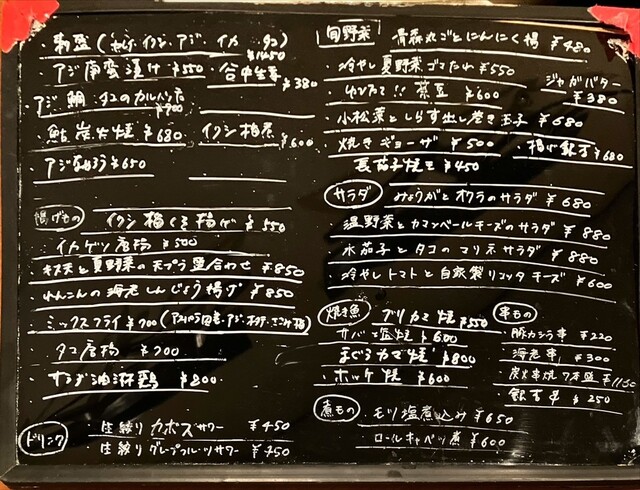 刺盛(サバ・イワシ・アジ・イカ タコ) ¥1450
・アジ南蛮漬け ¥550 ・谷中生姜 ¥380
・アジ 鯛 タコのカルパッチョ ¥900
・鮎炭火焼 ¥680 イワシ梅煮 ¥600
・アジなめろう ¥650
揚げもの
・イワシ梅しそ揚げ ¥550
・イカゲソ唐揚 ¥500
と夏野菜の天プラ盛合わせ ¥850
・れんこんの海老しんじょう揚げ ¥850
・ミックスフライ ¥900
・タコ唐揚 ¥700
・油淋鶏 ¥800
ドリンク
・生絞りカボスサワー ¥450
・生絞りグレープフルーツサワー ¥450
旬野菜
青森丸ごとにんにく揚 ¥480
・冷やし夏野菜ゴマだれ ¥550
・ゆでたて!! 茶豆 ¥600 ジャガバター ¥380
・小松菜としらす出し巻き玉子 ¥680
・焼きギョーザ ¥500 ・揚げ ¥680
長茄子焼き ¥450
サラダ
みょうがとオクラのサラダ ¥680
・温野菜とカマンベールチーズのサラダ ¥880
・水茄子とタコのマリネサラダ ¥880
・冷やしトマトと自家製リコッタチーズ ¥600
焼き魚
ブリカマ焼 ¥550
・サバ塩焼 ¥600
・まぐろカマ焼 ¥800
・ホッケ焼 ¥600
串もの
・豚カシラ串 ¥220
・海老串 ¥300
・炭火串焼7本盛 ¥1150
・串 ¥250
煮もの
・モツ塩煮込み ¥650
・ロールキャベツ煮 ¥600